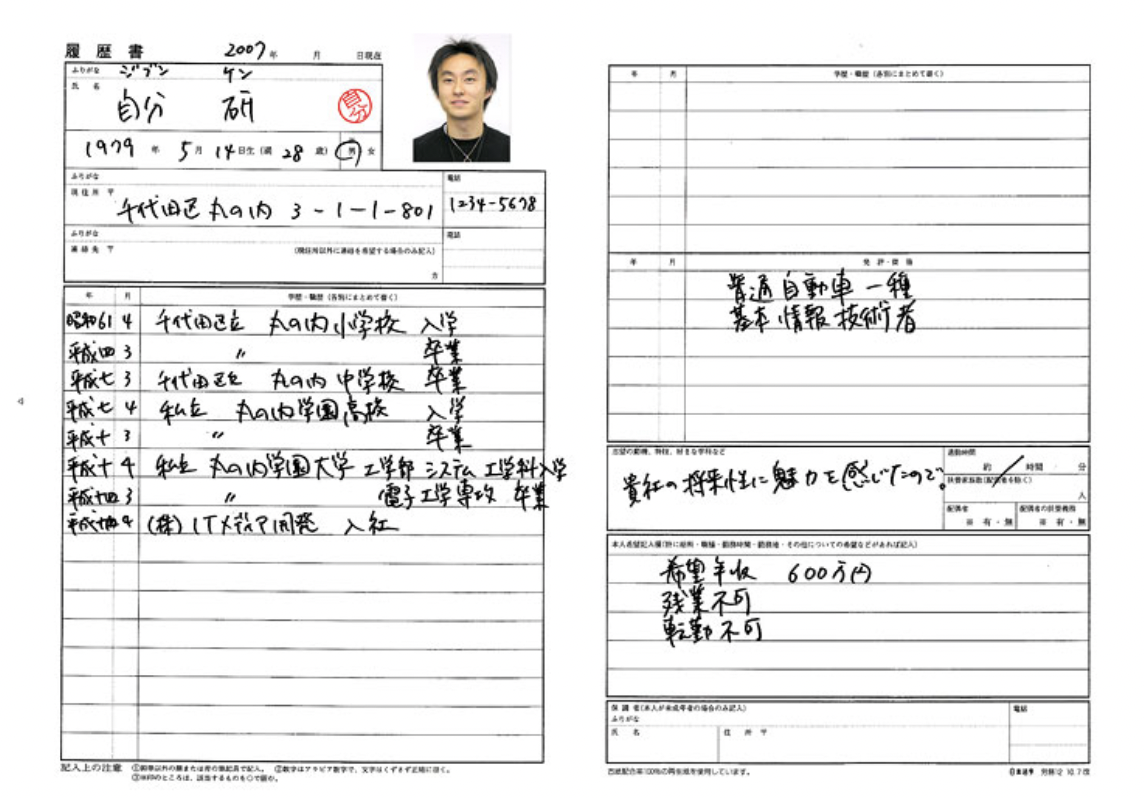 履歴書 2007年 月 日現在
ふりがな ジブン ケン
氏名 自分 研
自分
1979年 5月 14日生 (満 28 歳) 男 女
ふりがな
電話
現住所 〒
千代田区丸の内 3-1-1-801
1234-5678
ふりがな
電話
連絡先 〒 (現住所以外に連絡を希望する場合のみ記入)
方
年 月 学歴・職歴 (各別にまとめて書く)
昭和61 4 千代田区立 丸の内小学校 入学
平成四 3 〃 卒業
平成七 3 千代田区立 丸の内中学校 卒業
平成七 4 私立 丸の内学園高校 入学
平成十 3 〃 卒業
平成十 4 私立 丸の内学園大学 工学部 システム工学科入学
平成十四 3 〃 電子工学専攻 卒業
平成十四 4 (株)ITメディア開発 入社
記入上の注意 ①鉛筆以外の黒または青の筆記具で記入。 ②数字はアラビア数字で、文字はくずさず正確に書く。
③※印のところは、該当するものを○で囲む。
年 月 学歴・職歴 (各別にまとめて書く)
年 月 免許・資格
普通自動車一種
基本情報技術者
志望の動機、特技、好きな学科など
貴社の将来性に魅力を感じたので。
通勤時間
約 時間 分
扶養家族数(配偶者を除く)
人
配偶者
※ 有・無
配偶者の扶養義務
※ 有・無
本人希望記入欄(特に給料・職種・勤務時間・勤務地・その他についての希望などがあれば記入)
希望年収 600万円
残業不可
転勤不可
保護者(本人が未成年者の場合のみ記入)
電話
ふりがな
氏名 住所 〒
古紙配合率100%の再生紙を使用しています。